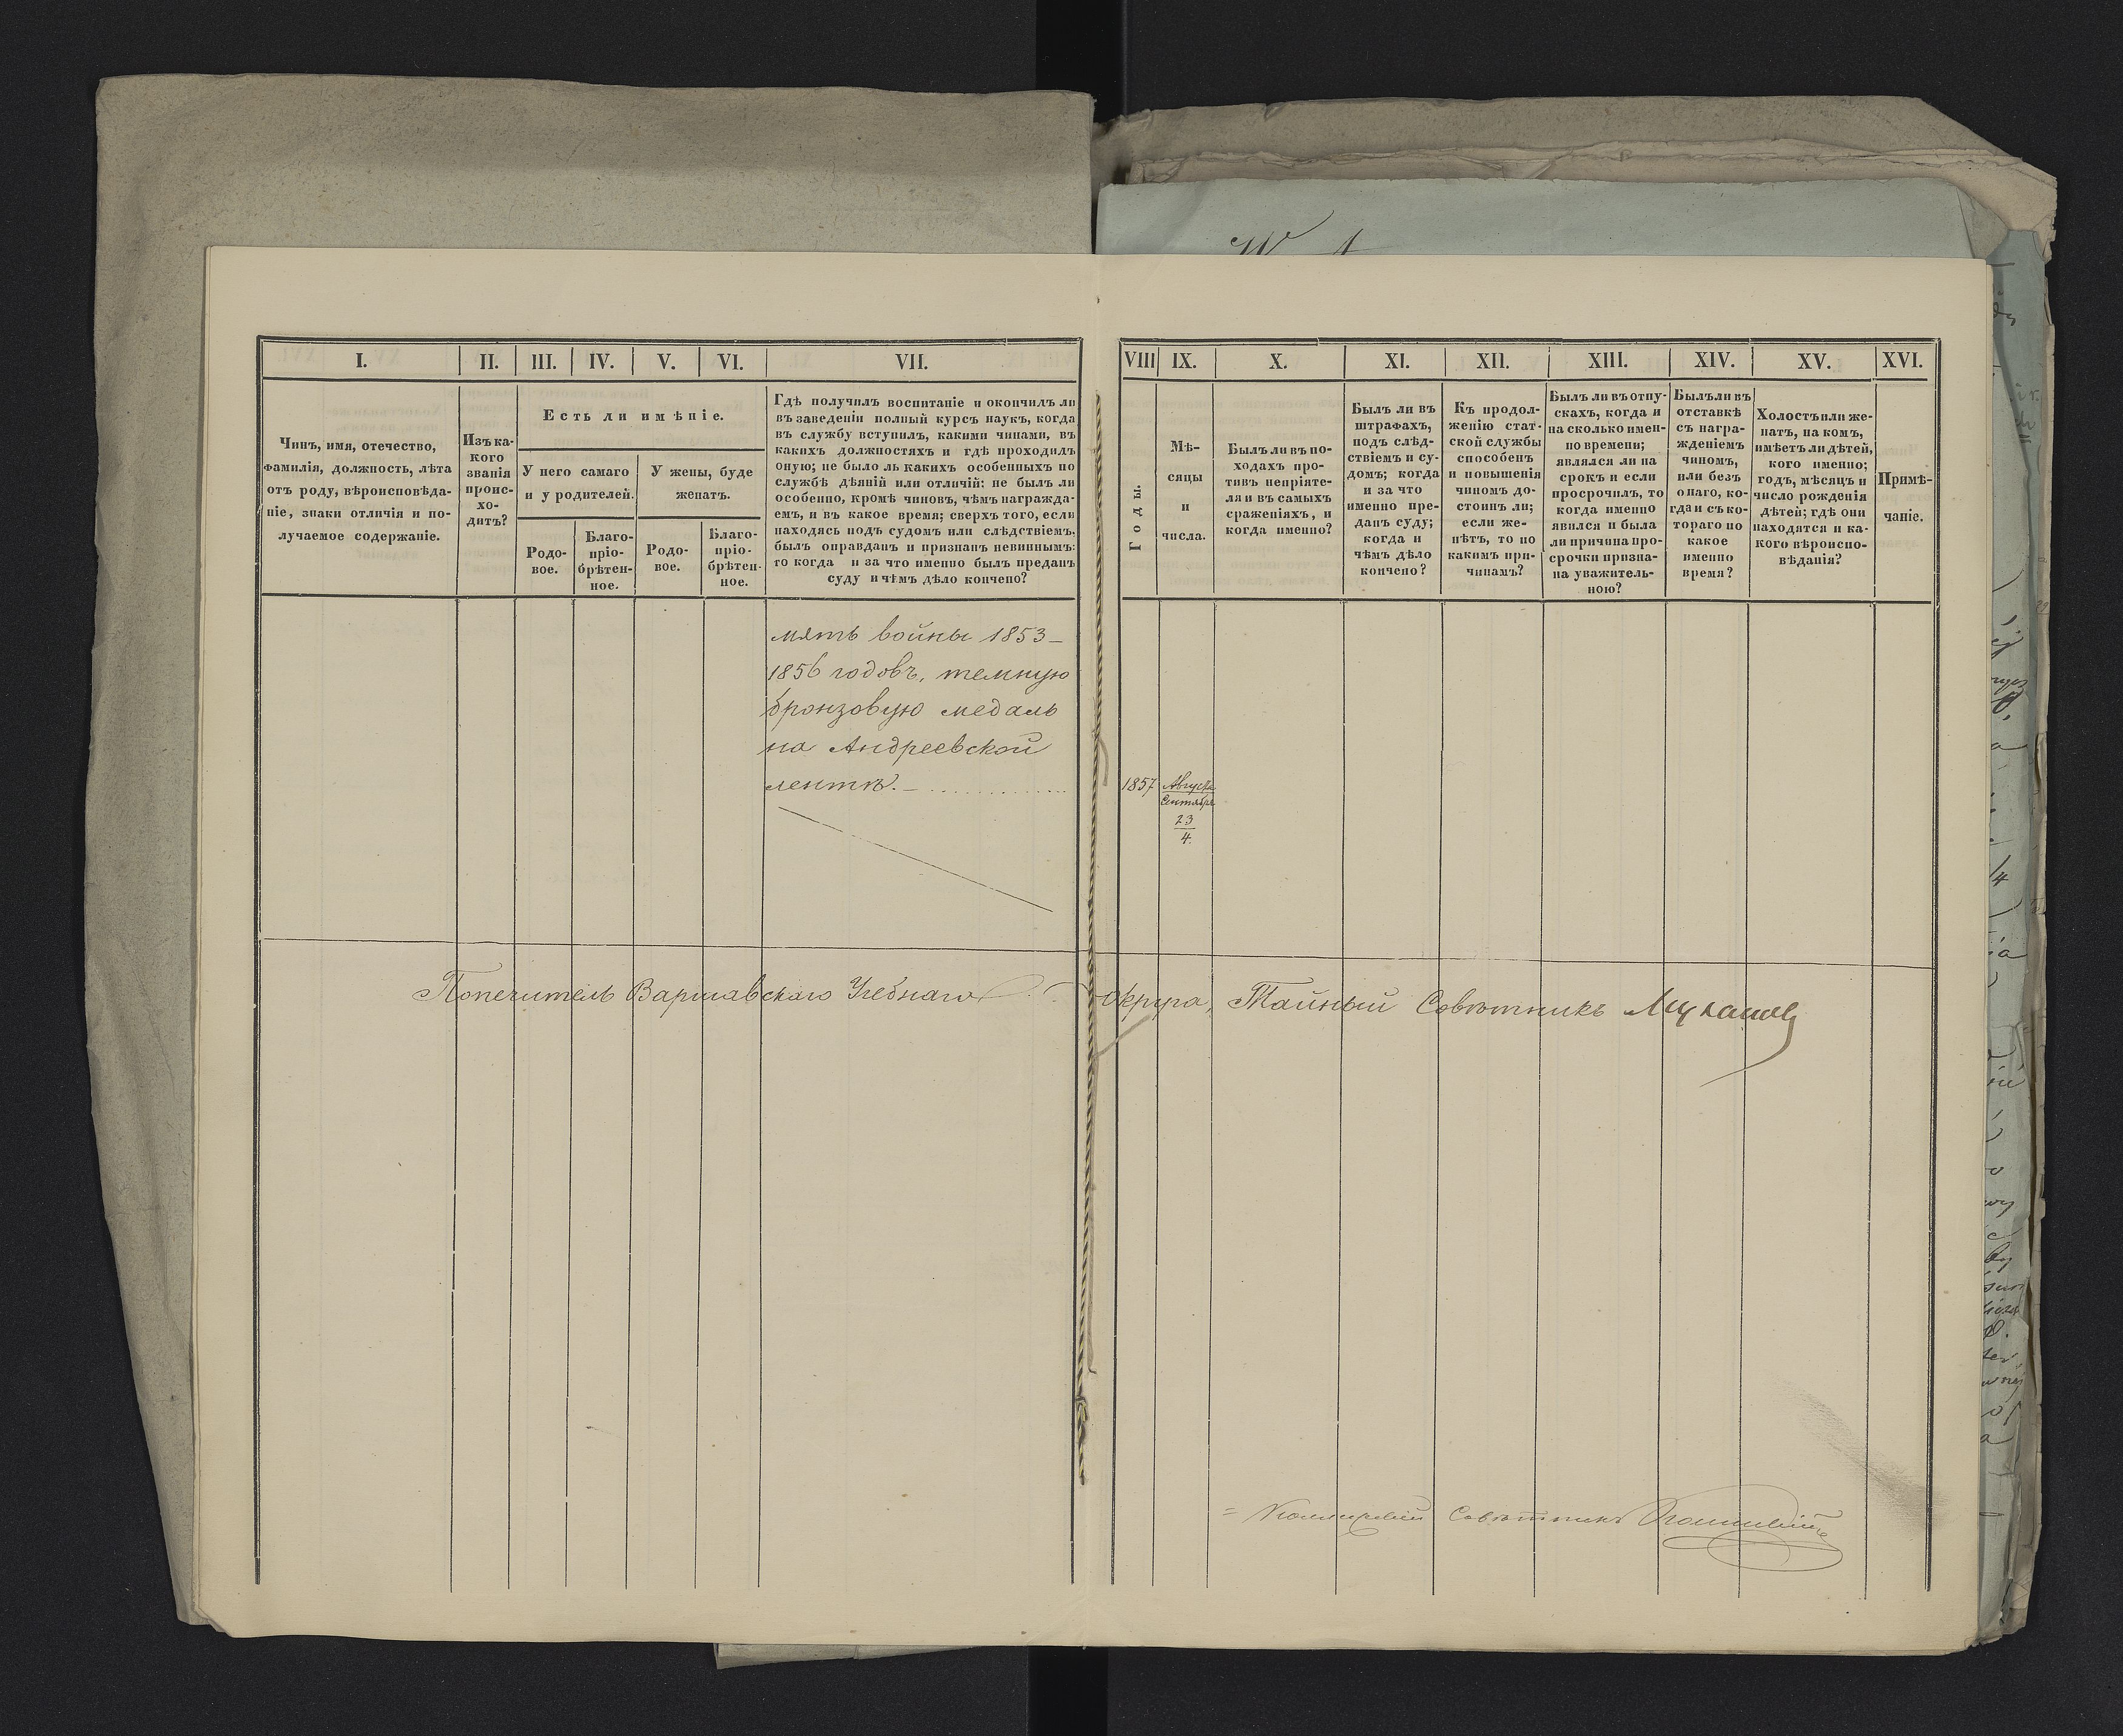 I. II. III. IV. V. VI. VII.
Чинъ, имя, отечество,
фамилія, должность, лѣта
отъ роду, вѣроисповѣда-
ніе, знаки отличія и по-
лучаемое содержаніе.
Изъ ка-
кого
званія
проис-
хо-
дитъ?
Есть ли имѣніе.
У него самаго
и у родителей.
У жены, буде
женатъ.
Родо-
вое.
Благо-
пріо-
брѣтен-
ное.
Родо-
вое.
Благо-
пріо-
брѣтен-
ное.
Гдѣ получилъ воспитаніе и окончилъ ли
въ заведеніи полный курсъ наукъ, когда
въ службу вступилъ, какими чинами, въ
какихъ должностяхъ и гдѣ проходилъ
оную; не было ль какихъ особенныхъ по
службѣ дѣяній или отличій: не былъ ли
особенно, кромѣ чиновъ, чѣмъ награжда-
емъ, и въ какое время; сверхъ того, если
находясь подъ судомъ или слѣдствіемъ,
былъ оправданъ и признанъ невиннымъ:
то когда и за что именно былъ преданъ
суду и чѣмъ дѣло кончено?
мять войны 1853–
1856 годовъ, темную
бронзовую медаль
на Андреевской
лентѣ.–
VIII IX. X. XI. XII. XIII. XIV. XV. XVI.
Годы.
Мѣ-
сяцы
и
числа.
Былъ ли въ по-
ходахъ про-
тивъ непріяте-
ля и въ самыхъ
сраженіяхъ, и
когда именно?
Былъ ли въ
штрафахъ,
подъ слѣд-
ствіемъ и су-
домъ; когда
и за что
именно пре-
данъ суду;
когда и
чѣмъ дѣло
кончено?
Къ продол-
женію стат-
ской службы
способенъ
и повышенія
чиномъ до-
стоинъ ли;
если же-
нѣтъ, то по
какимъ при-
чинамъ?
Былъ ли въ отпу-
скахъ, когда и
на сколько имен-
но времени;
являлся ли на
срокъ и если
просрочилъ, то
когда именно
явился и была
ли причина про-
срочки призна-
на уважитель-
ною?
Былъ ли въ
отставкѣ
съ награ-
жденіемъ
чиномъ,
или безъ
онаго, ко-
гда и съ ко-
тораго по
какое
именно
время?
Холостъ или же-
натъ, на комъ,
имѣетъ ли дѣтей,
кого именно;
годъ, мѣсяцъ и
число рожденія
дѣтей; гдѣ они
находятся и ка-
кого вѣроиспо-
вѣданія?
Примѣ-
чаніе.
1857 Августа
Сентября
23
4.
Попечитель Варшавскаго Учебнаго округа, Тайный Совѣтникъ Мухановъ
Совѣтникъ